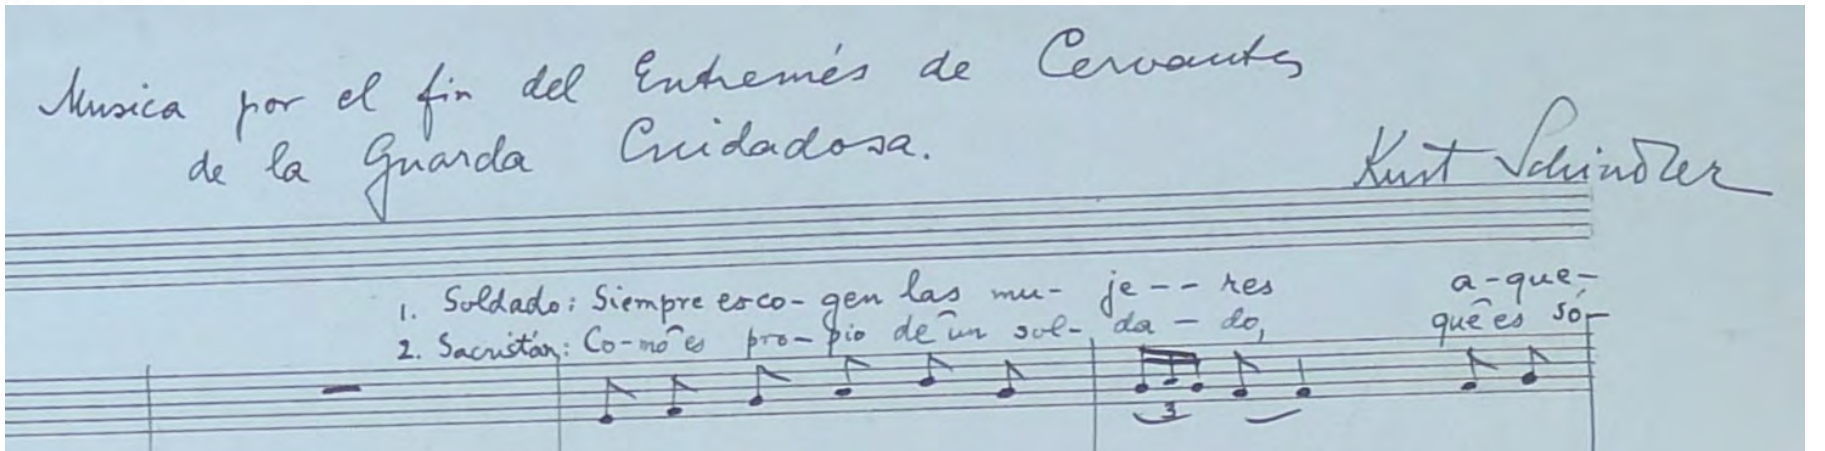 Musica por el fin del Entremés de Cervantes
de la Guarda Cuidadosa.
Kurt Schindler
1. Soldado: Siempre esco-gen las mu- je-- res a-que-
2. Sacristán: Co-mo es pro-pio de un sol- da-do, que es só-
3